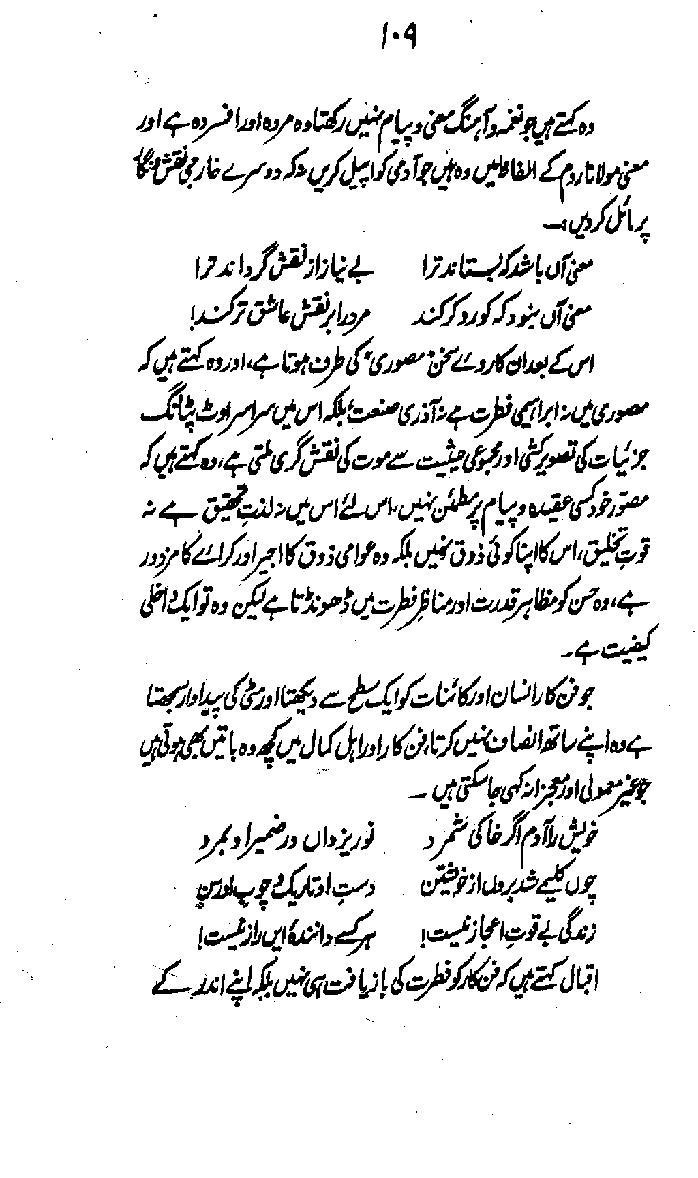 ۱۰۹
وہ کہتے ہیں جو نغمہ و آہنگ معنی و پیام نہیں رکھتا وہ مردہ اور افسردہ ہے اور
معنی مولانا روم کے الفاظ میں وہ ہیں جو آدمی کو اپیل کریں نہ کہ دوسرے خارجی نقش و نگار
پر مائل کر دیں :۔
معنی آں باشد کہ بستاند ترا بے نیاز از نقش گرداند ترا
معنی آں نبود کہ کور و کر کند مرد را بر نقش عاشق تر کند!
اس کے بعد ان کا روے سخن "مصوری" کی طرف ہوتا ہے، اور وہ کہتے ہیں کہ
مصوری میں نہ ابراہیمی فطرت ہے نہ آذری صنعت، بلکہ اس میں سراسر اوٹ پٹانگ
جزئیات کی تصویر کشی اور مجموعی حیثیت سے موت کی نقش گری ملتی ہے، وہ کہتے ہیں کہ
مصور خود کسی عقیدہ و پیام پر مطمئن نہیں، اس لئے اس میں نہ لذت تحقیق ہے نہ
قوتِ تخلیق، اس کا اپنا کوئی ذوق نہیں بلکہ وہ عوامی ذوق کا اجیر اور کرائے کا مزدور
ہے، وہ حسن کو مظاہر قدرت اور مناظرِ فطرت میں ڈھونڈتا ہے لیکن وہ تو ایک داخلی
کیفیت ہے۔
جو فن کار انسان اور کائنات کو ایک سطح سے دیکھتا اور مٹی کی پیداوار سمجھتا
ہے وہ اپنے ساتھ انصاف نہیں کرتا، فن کار اور اہل کمال میں کچھ وہ باتیں بھی ہوتی ہیں
جو غیر معمولی اور معجزانہ کہی جا سکتی ہیں۔
خویش را آدم اگر خاکی شمرد نور یزداں در ضمیر او بمرد
چوں کلیمے شد بروں از خویشتن دستِ او تاریک و چوب او رسن
زندگی بے قوتِ اعجاز نیست! ہر کسے دانندۂ ایں راز نیست!
اقبال کہتے ہیں کہ فن کار کو فطرت کی بازیافت ہی نہیں بلکہ اپنے اندر کے